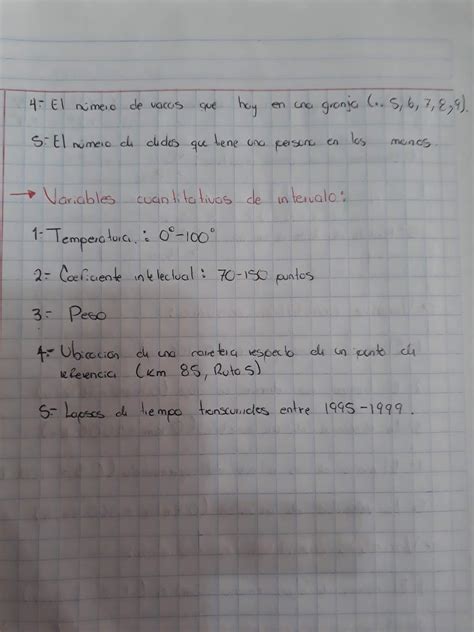 4.- El número de vacas que hay en una granja (.. 5, 6, 7, 8, 9).
5.- El número de dedos que tiene una persona en las manos.
→ Variables cuantitativas de intervalo:
1- Temperatura. : 0° - 100°
2- Coeficiente intelectual : 70-150 puntos
3.- Peso
4- Ubicación de una carretera respecto de un punto de
referencia (km 85, Ruta 5)
5.- Lapsos de tiempo transcurridos entre 1995-1999.